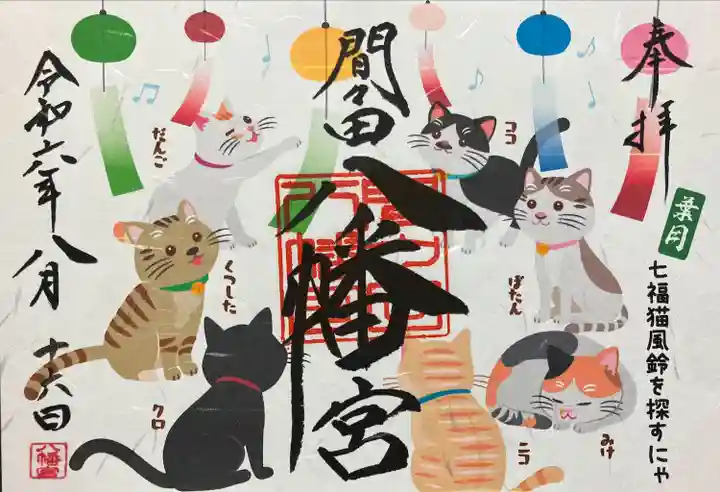 奉拝
葉月
七福猫風鈴を探すにゃ
間々田
八幡宮
令和六年八月十六日
だんご
ココ
くつした
ぼたん
クロ
ニコ
みけ
八幡宮